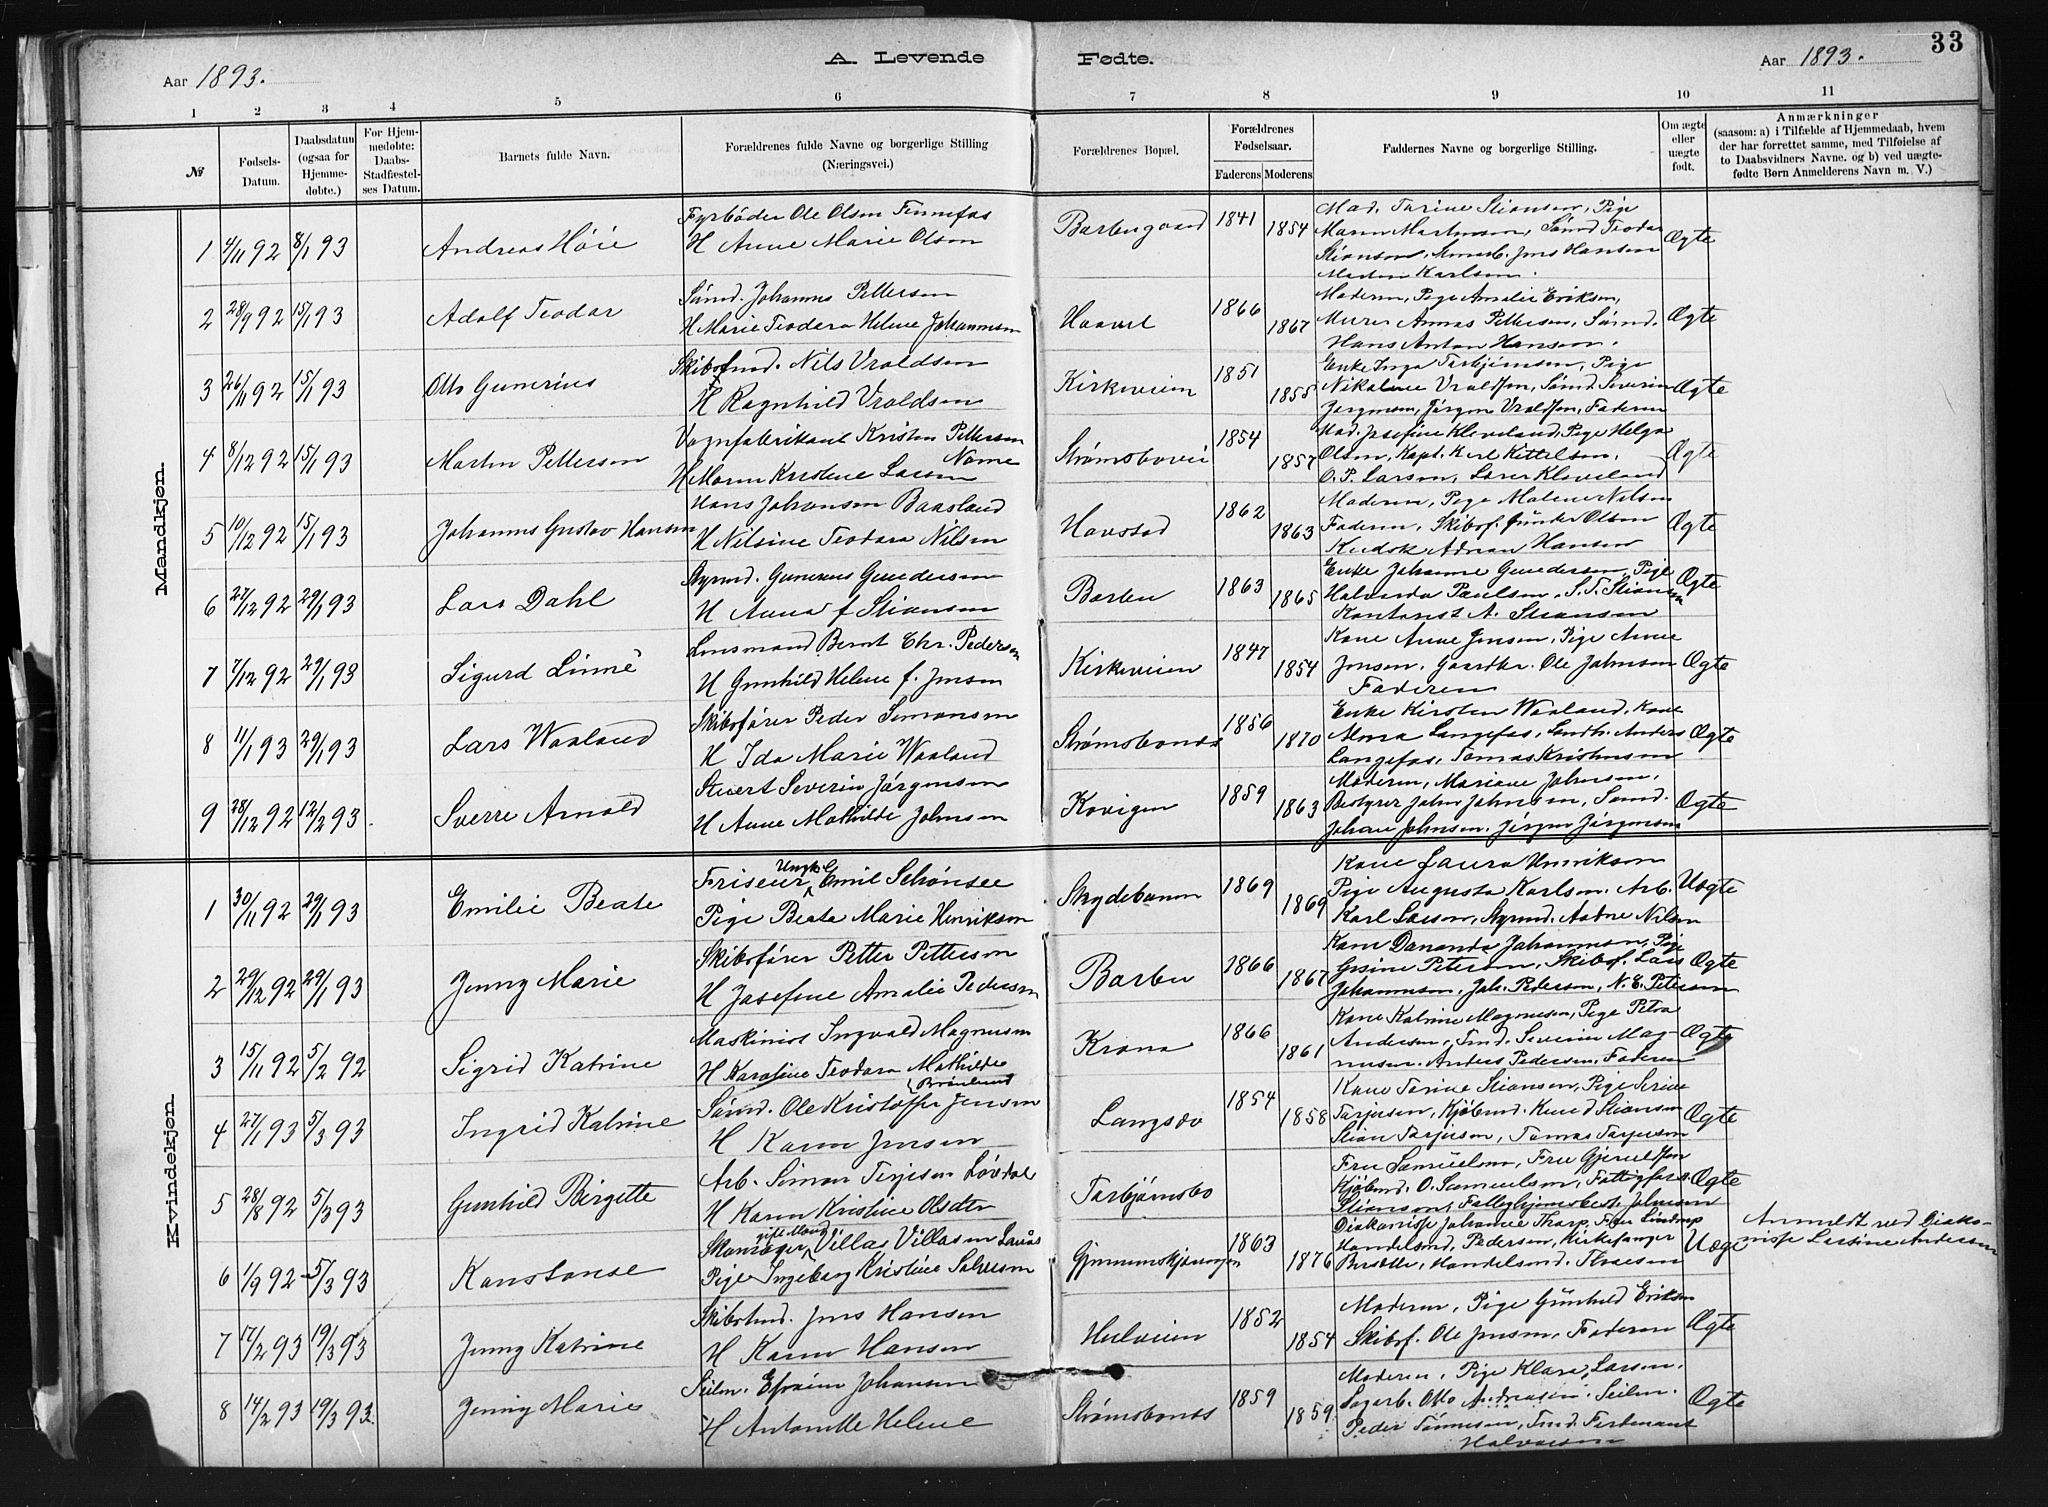 A. Levende Fødte.
33
Aar 1893.
Aar 1893.
1 2 3 4 5 6 7 8 9 10 11
№
Fødsels-Datum.
Daabsdatum (ogsaa for Hjemme-døbte.)
For Hjem-medøbte: Daabs-Stadfæstel-ses Datum.
Barnets fulde Navn.
Forældrenes fulde Navne og borgerlige Stilling (Næringsvei.)
Forældrenes Bopæl.
Forældrenes Fødselsaar.
Faderens Moderens
Faddernes Navne og borgerlige Stilling.
Om ægte eller uægte født.
Anmærkninger
(saasom: a) i Tilfælde af Hjemmedaab, hvem
der har forrettet samme, med Tilføielse af
to Daabsvidners Navne, og b) ved uægte-
fødte Børn Anmelderens Navn m. V.)
Mandkjøn.
1 4/11 92 8/1 93 Andreas Høie
Fyrbøder Ole Olsen
H Anne Marie Olsen
1841 1854
Mad. Tarine Stiansen, Pige
Maren Martinsen, Sømd Teodor
Stiansen, Jens Hansen
Martin Karlsen.
Ægte
2 28/9 92 15/1 93 Adolf Teodor
Sømd. Johannes Pettersen
H Marie Teodora Helene Johannesen
1866 1867
Moderen, Pige Amalie Eriksen,
Murer Pettersen, Sømd.
Hans Anton Hansen.
Ægte
3 26/11 92 15/1 93 Otto Gunerius
Nils Vraldsen
H Ragnhild Vraldsen
Kirkeveien
1851 1855
Enke Inga Torbjørnsen, Pige
Nikoline Vraldsen, Sømd Severin
Jørgensen, Jørgen Vraldsen, Faderen
Ægte
4 8/12 92 15/1 93 Martin Pettersen
Vognfabrikant Kristen Pettersen
Næme
H Maren Kristine Larsen
Strømsbovei
1854 1857
Mad. Josefine Kleveland, Pige Helga
Olsen, Kapt. Kittelsen,
O. P. Larsen, Lærer Kleveland
Ægte
5 10/12 92 15/1 93 Johannes Gustav Hansen
Hans Johansen Baasland
H Nilsine Teodora Nilsen
Havstad
1862 1863
Moderen, Pige Malene Nilsen
Faderen, Skibsf. Olsen
Adrian Hansen
Ægte
6 27/12 92 29/1 93 Lars Dahl
Styrmd. Gunerius Gundersen
H Anna f Stiansen
Barbu
1863 1865
Enke Johanne Gundersen, Pige
Halvarda Paulsen, S. T. Stiansen
Kontorist A. Stiansen
Ægte
7 7/12 92 29/1 93 Sigurd Linné
Lensmand Bernt Chr. Pedersen
H Gunhild Helene f. Jensen
Kirkeveien
1847 1854
Kone Anne Jensen, Pige Anne
Jensen, Gaardbr. Ole Johnsen
Faderen
Ægte
8 11/1 93 29/1 93 Lars Waaland
Skibsfører Peder Simonsen
H Ida Marie Waaland
1856 1870
Enke Kirsten Waaland, Kone
Langefos, Anders
Langefos, Tomas Kristensen
Ægte
9 28/12 92 12/2 93. Sverre Arnold
Stuert Severin Jørgensen
H Anne Mathilde Johnsen
Kovigen
1859 1863
Moderen, Mariane Johnsen,
Bestyrer John Johnsen, Sømd.
Johan Johnsen, Jørgen Jørgensen
Ægte
Kvindekjøn.
1 30/11 92 29/1 93 Emilie Beate
Ungk.
Friseur Emil Schønsee
Pige Beata Marie Henriksen
Skydebanen
1869 1869
Kone Laura Henriksen
Pige Augusta Karlsen, Arb.
Karl Larsen, Styrmd. Nilsen
Uægte
2 29/12 92 29/1 93 Jenny Marie
Skibsfører Petter Pettersen
H Josefine Amalie Pedersen
Barbu
1866 1867
Kone Johannesen, Pige
Gesine Petersen, Skibsf. Lars
Johannesen, Joh. Pedersen, N. E. Petersen
Ægte
3 15/11 92 5/2 92 Sigrid Katrine
Maskinist Ingvald Magnusen
H Karoline Teodora Mathilde
Krana
1866 1861
Kone Katrine Magnusen, Pige Petra
Andersen, Tmd. Severin Mag-
nusen, Anders Pedersen, Faderen
Ægte
4 27/1 93 5/3 93 Ingrid Katrine
Sømd. Ole Kristoffer Jensen
H Karen Jensen
Langsæ
1854 1858
Kone Tarine Stiansen, Pige Serine
Tarjersen, Kjøbmd. Knud Stiansen
Stian Tarjersen, Tomas Tarjersen
Ægte
5 28/8 92 5/3 93 Gunhild Birgitte
Arb. Simon Terjesen Løvdal
H Karen Kristine Olsdtr
Torbjørnsbo
Fru Samuelsen, Fru Gjeruldsen
Kjøbmd. O. Samuelsen, Fattigfors.
Stiansen, Fattighjemsbest. Johnsen
Ægte
6 1/9 92 5/3 93 Konstanse
gift Mand
Skomager Villas Villasen
Pige Ingeborg Kristine
1863 1876
Diakonisse Johanne Tharp, Frk Lindrup
Handelsmd. Pedersen, Kirkesanger
Handelsmd. Thoresen
Uægte
Anmeldt ved Diako-
nisse Lassine Andersen
7 17/2 93 19/3 93 Jenny Katrine
Jens Hansen
H Karen Hansen
1852 1854
Moderen, Pige Gunhild Eriksen
Skibsf. Ole Jensen, Faderen
Ægte
8 14/2 93 19/3 93. Jenny Marie
Seilm. Efraim Johansen
H Antonette Helene
Strømsbonæs
1859 1859
Moderen, Pige Klara Larsen,
Sagarb. Otto Andreasen, Seilm.
Peder Tønnesen, Tmd. Ferdinant
Halvorsen
Ægte